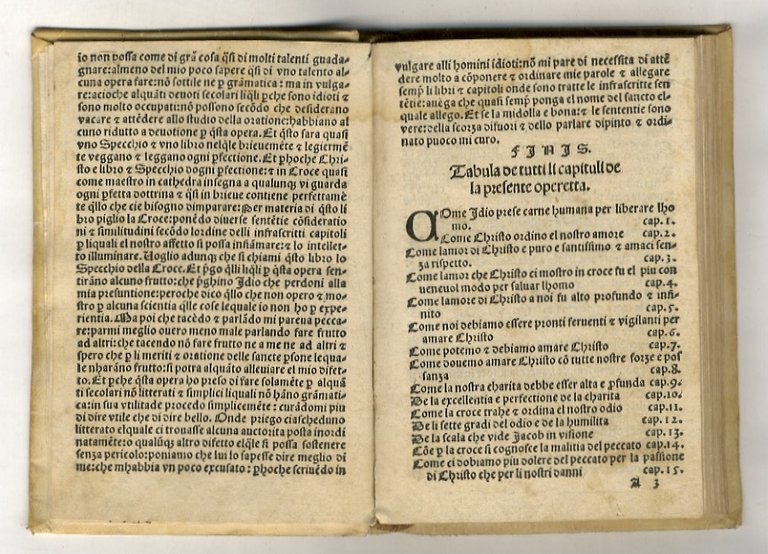 io non possa come di grã cosa q̃si di molti talenti guada-
gnare:almeno del mio poco sapere q̃si di vno talento al-
cuna opera fare:nõ sottile ne ꝑ grãmatica: ma in vulga-
re:acioche alquãti deuoti secolari liq̃li ꝑche sono idioti ⁊
sono molto occupati:nõ possono secõdo che desiderano
vacare ⁊ attẽdere allo studio della oratione:habbiano al
cuno ridutto a deuotione ꝑ q̃sta opera. Et q̃sto sara quasi
vno Specchio ⁊ vno libro nelq̃le brieuemẽte ⁊ legiermẽ
te veggano ⁊ leggano ogni ꝑfectione. Et ꝑhoche Chri-
sto e libro ⁊ Specchio dogni ꝑfectione:⁊ in Croce quasi
come maestro in cathedra insegna a qualunq; vi guarda
ogni ꝑfetta dottrina ⁊ q̃si in brieue contiene perfettamẽ
te q̃llo che cie bisogno dimparare:Per materia di q̃sto li
bro piglio la Croce:ponẽdo diuerse sentẽtie cõsideratio
ni ⁊ similitudini secõdo lordine delli infrascritti capitoli
ꝑ liquali el nostro affetto si possa infiãmare:⁊ lo intellet-
to illuminare. Uoglio adunq; che si chiami q̃sto libro lo
Specchio della Croce. Et ꝑgo q̃lli liq̃li ꝑ q̃sta opera sen-
tirãno alcuno frutto:che ꝑghino Idio che perdoni alla
mia presuntione:peroche dico q̃llo che non opero ⁊ mo-
stro ꝑ alcuna scientia q̃lle cose lequale io non ho ꝑ expe-
rientia. Ma poi che tacẽdo ⁊ parlãdo mi pareua pecca-
re:parmi meglio ouero meno male parlando fare frutto
ad altri:che tacendo nõ fare frutto ne a me ne ad altri ⁊
spero che ꝑ li meriti ⁊ oratione delle sancte ꝑsone lequa-
le nharãno frutto:si potra alquãto alleuiare el mio difet-
to. Et ꝑche q̃sta opera ho preso di fare solamẽte ꝑ alquã
ti secolari nõ litterati ⁊ simplici liquali nõ hãno grãmati-
ca:in sua vtilitade procedo simplicemẽte: curãdomi piu
di dire vtile che di dire bello. Onde priego ciascheduno
litterato elquale ci trouasse alcuna auctorita posta inordi
natamẽte:o qualũq; altro difetto elq̃le si possa sostenere
senza pericolo:poniamo che lui lo sapesse dire meglio di
me:che mhabbia vn poco excusato: ꝑhoche scriuẽdo in
vulgare alli homini idioti:nõ mi pare di necessita di attẽ
dere molto a cõponere ⁊ ordinare mie parole ⁊ allegare
semꝑ li libri ⁊ capitoli onde sono tratte le infrascritte sen
tẽtie:auega che quasi semꝑ ponga el nome del sancto el-
quale allego. Et se la midolla e bona:⁊ le sententie sono
vere:della scorza difuori ⁊ dello parlare dipinto ⁊ ordi-
nato puoco mi curo.
FINIS.
Tabula de tutti li capituli de
la presente operetta.
COme Idio prese carne humana per liberare lho
mo. cap.1.
Come Christo ordino el nostro amore cap.2.
Come lamor di Christo e puro e santissimo ⁊ amaci sen-
za rispetto. cap.3.
Come lamor che Christo ci mostro in croce fu el piu con
ueneuol modo per saluar lhomo cap.4.
Come lamore di Christo a noi fu alto profundo ⁊ infi-
nito cap.5.
Come noi debiamo essere pronti feruenti ⁊ vigilanti per
amare Christo cap.6.
Come potemo ⁊ debiamo amare Christo cap.7.
Come douemo amare Christo cõ tutte nostre forze e pos
sanza cap.8.
Come la nostra charita debbe esser alta e ꝓfunda cap.9.
De la excellentia e perfectione de la charita cap.10.
Come la croce trahe ⁊ ordina el nostro odio cap.11.
De li sette gradi del odio e de la humilita cap.12.
De la scala che vide Jacob in visione cap.13.
Cõe ꝑ la croce si cognosce la malitia del peccato cap.14.
Come ci dobiamo piu dolere del peccato per la passione
di Christo che per li nostri danni cap.15.
A 3